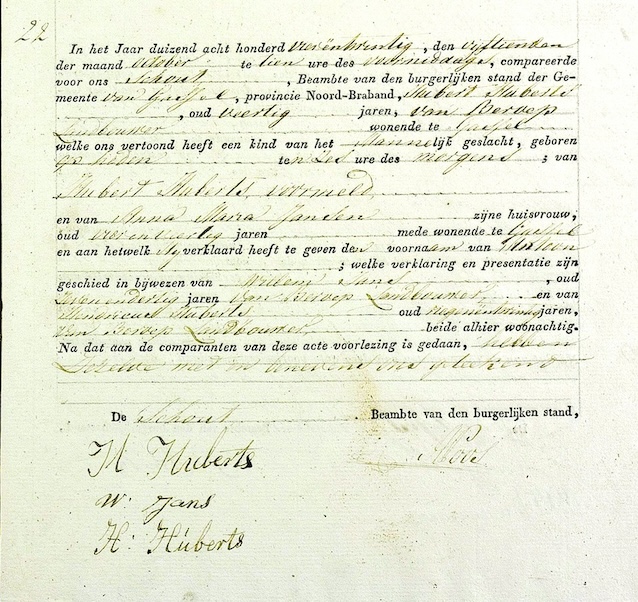 22
In het Jaar duizend acht honderd vierëntwintig, den vijftienden
der maand October te tien ure des voormiddags, compareerde
voor ons Schout, Beambte van den burgerlijken stand der Ge-
meente van Gassel, provincie Noord-Braband, Hubert Huberts
, oud veertig jaren, van Beroep
Landbouwer wonende te Gassel
welke ons vertoond heeft een kind van het Mannelijk geslacht, geboren
op heden ten zes ure des morgens ; van
Hubert Huberts voormeld
en van Anna Maria Jansen zijne huisvrouw,
oud vierenveertig jaren mede wonende te Gassel
en aan hetwelk hij verklaard heeft te geven den voornaam van Antoon
; welke verklaring en presentatie zijn
geschied in bijwezen van Willem Jans , oud
zevenendertig jaren van Beroep Landbouwer en van
Huberts oud jaren,
van Beroep Landbouwer beide alhier woönachtig.
Na dat aan de comparanten van deze acte voorlezing is gedaan, hebben
dezelve met ons geteekend
De Schout Beambte van den burgerlijken stand,
H Huberts
W: Jans
H: Huberts